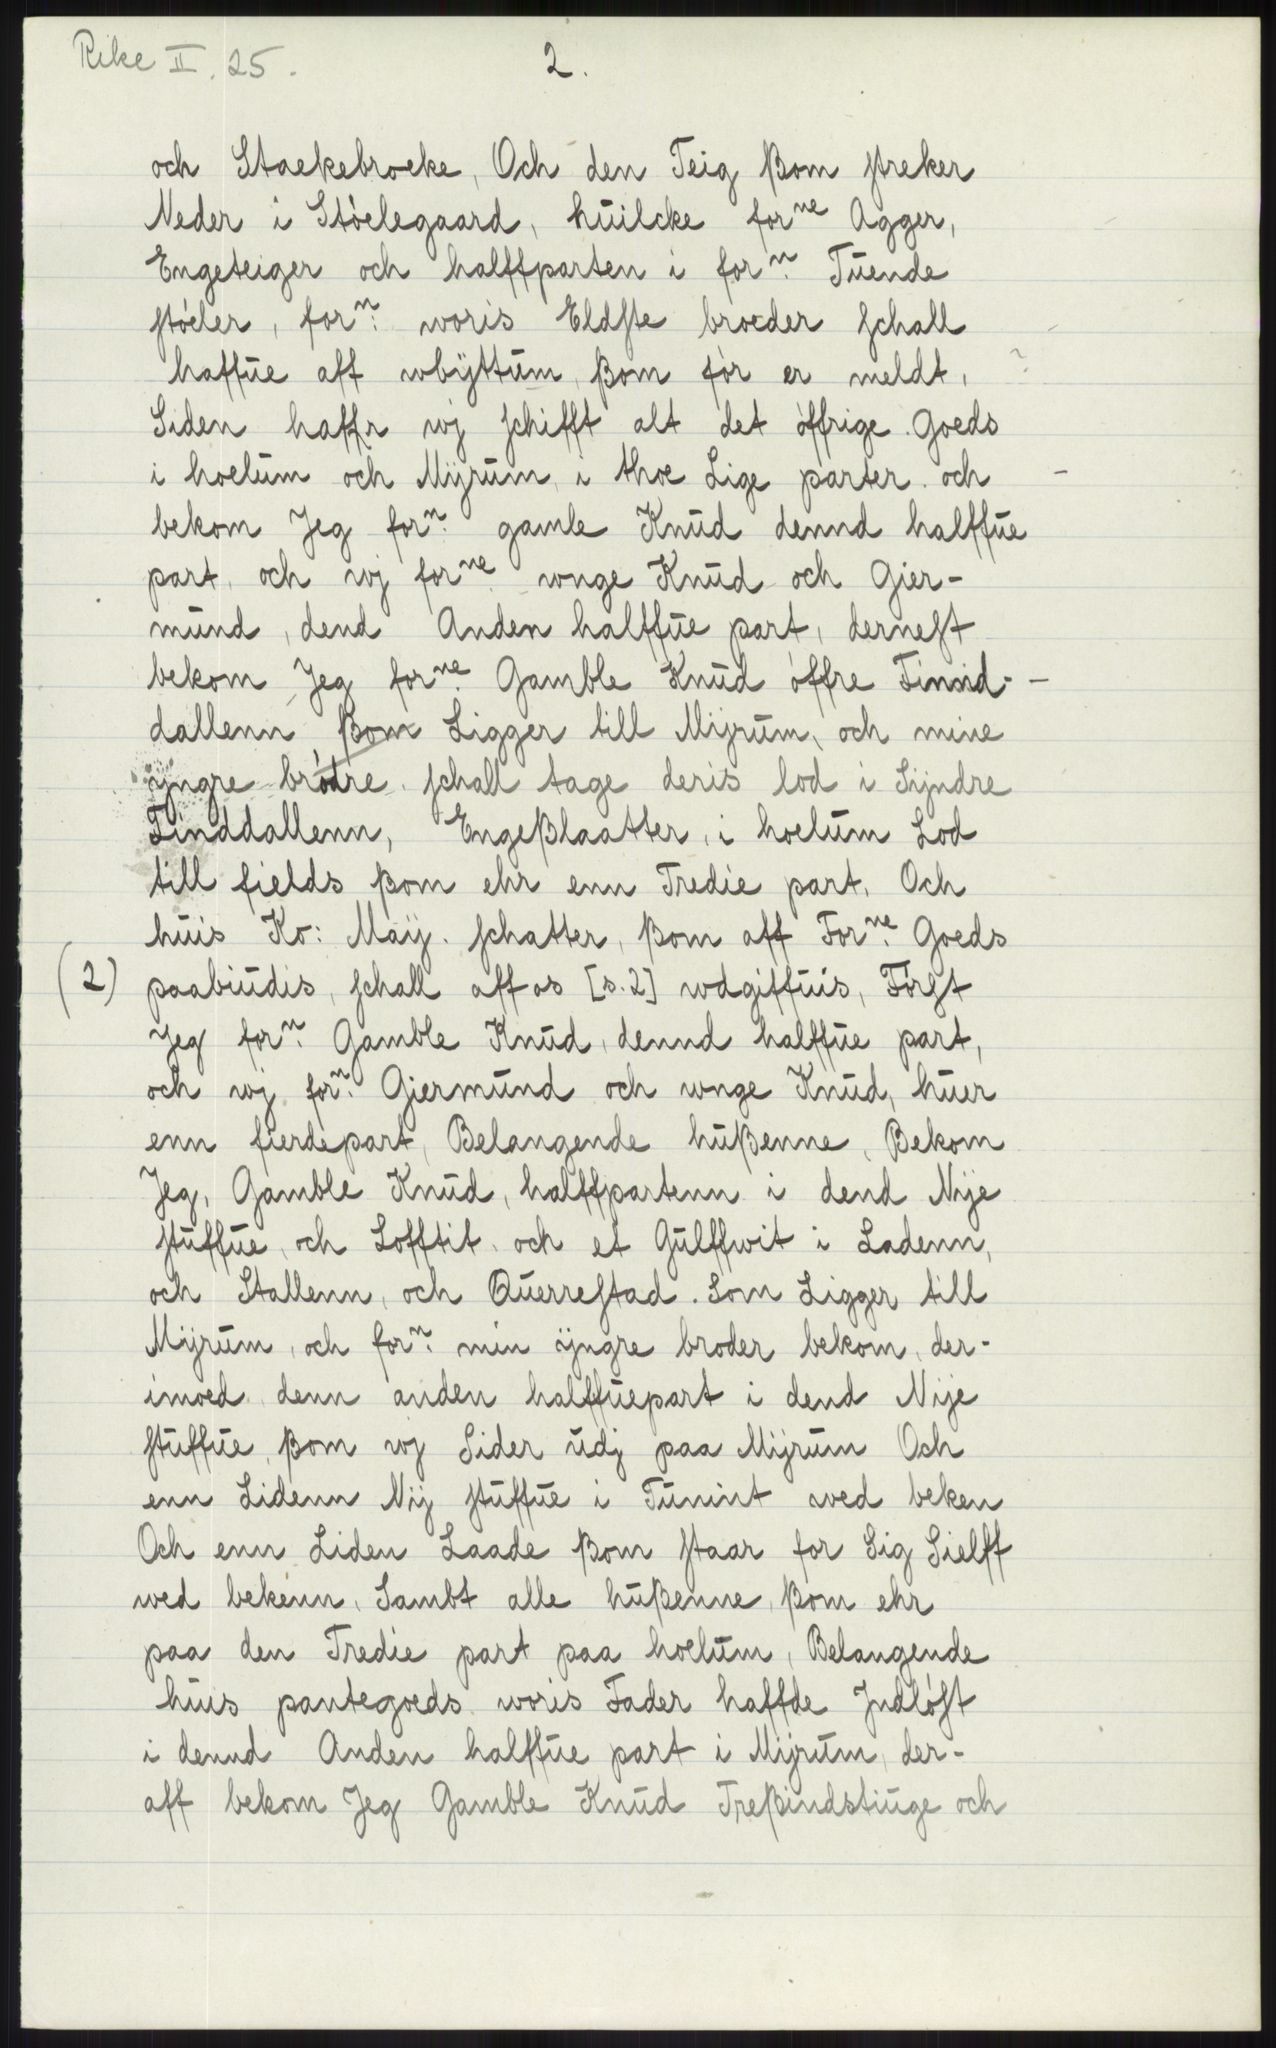 Rike II. 25.
2.
och Stackebrocke, Och den Teig ßom streker
Neder i Stòelegaard, huilcke forne Agger,
Engeteiger och halffparten i forn: Tuende
stòeler, forn: woris Eldste broeder schall
haffue aff wbÿttum, ßom fòr er meldt,
Siden haffr wj schifft alt det òffrige Goeds
i hoelum och Mÿrum, i thoe Lige parter och
bekom Jeg forn: gamle Knud dennd halffue
part, och wj forne wnge Knud och Gier-
mund, dend Anden halffue part, dernest
bekom Jeg forne Gamble Knud òffre Finnd-
dallenn ßom Ligger till Mÿrum, och mine
ÿngre bròdre schall tage deris lod i Sÿndre
Finddallenn, Engeßlaatter, i hoelum Lod
till fields ßom ehr enn Tredie part, Och
huis Ko: Maÿ. schatter, ßom aff Forne Goeds
(2) paabiudis, schall aff os [s. 2] wdgiffuis, Fòrst
Jeg forn: Gamble Knud, dennd halffue part,
och wj forn: Giermund och wnge Knud, huer
enn fierdepart, Belangende hußenne, Bekom
Jeg, Gamble Knud, halffpartenn i dend Nÿe
stuffue, och Lofftit, och et Gulffwit i Ladenn,
och Stallenn, och Querrestad. Som Ligger till
Mÿrum, och forn: min ÿngre broder bekom, der-
imoed, denn anden halffuepart i dend Nÿe
stuffue, ßom wj Sider udj paa Mÿrum Och
enn Lidenn Nÿ stuffue i Tunint wed beken
Och enn Liden Laade ßom staar for Sig Sielff
wed bekenn, Sambt alle hußenne, ßom ehr
paa den Tredie part paa hoelum, Belangende
huis pantegoeds woris Fader haffde Jndlòst
i dennd Anden halffue part i Mÿrum, der-
aff bekom Jeg Gamble Knud Treßindstiuge och